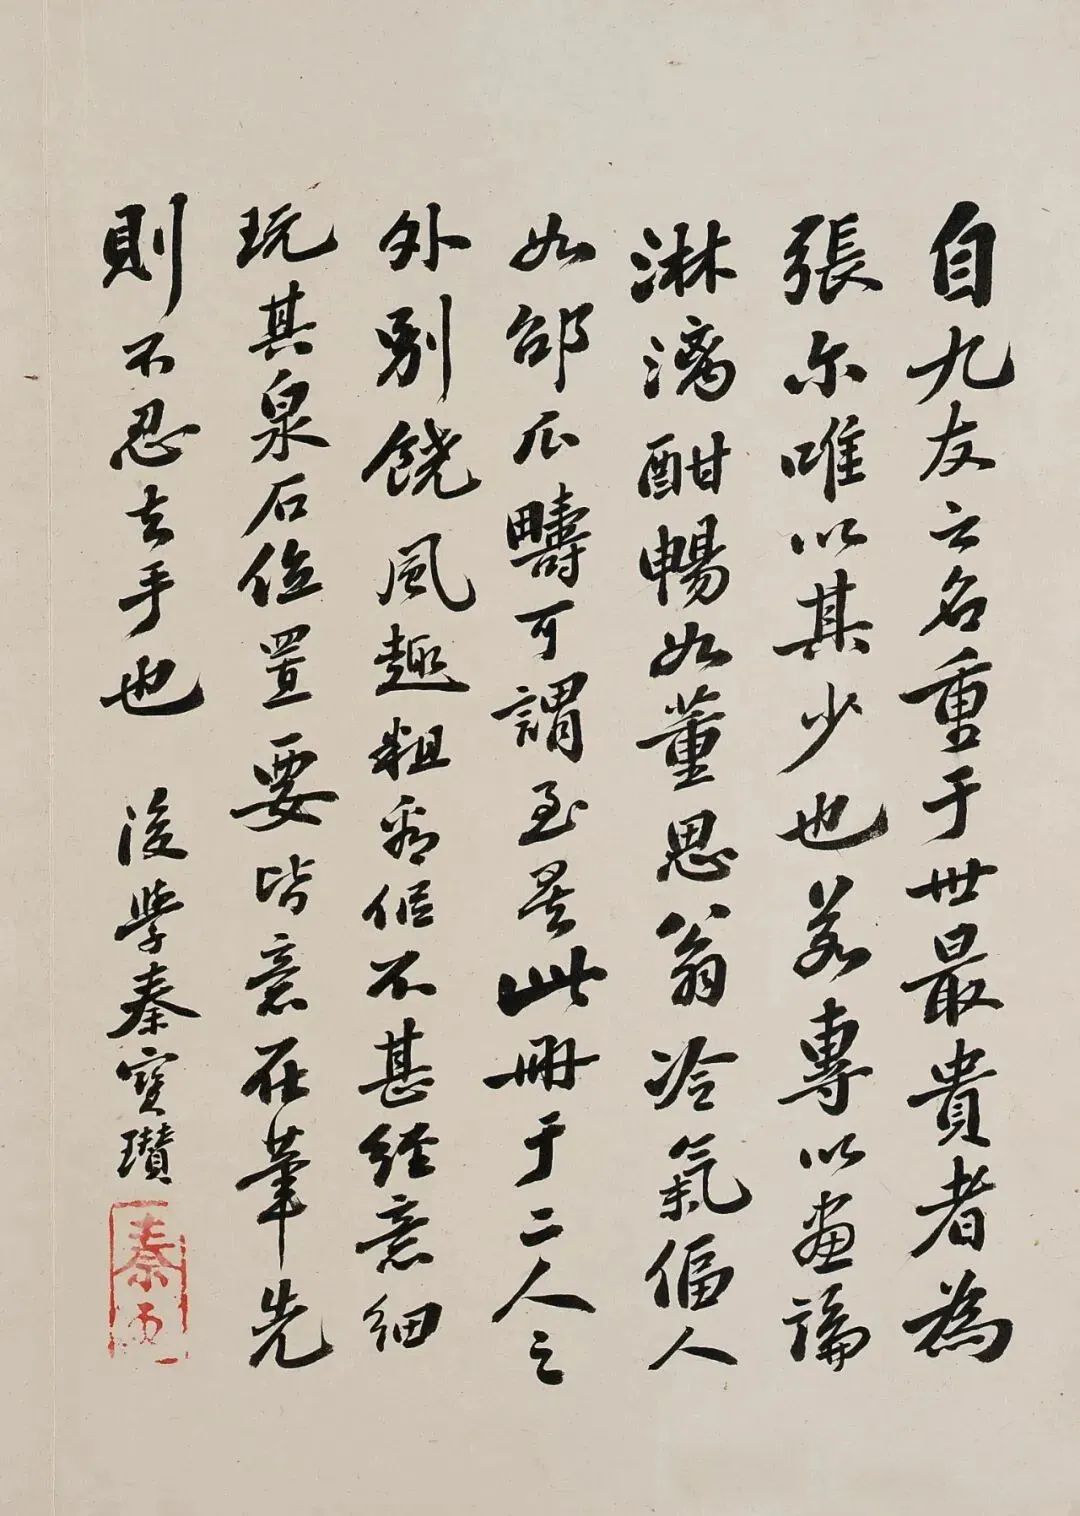 自九友之名重于世最貴者為
張尔唯以其少也若專以画論
淋漓酣暢如董思翁冷氣偪人
如邵瓜疇可謂至矣此冊于二人之
外別饒風趣粗看佀不甚經意細
玩其泉石位置要皆意在筆先
則不忍去手也 後學秦寶瓚
秦